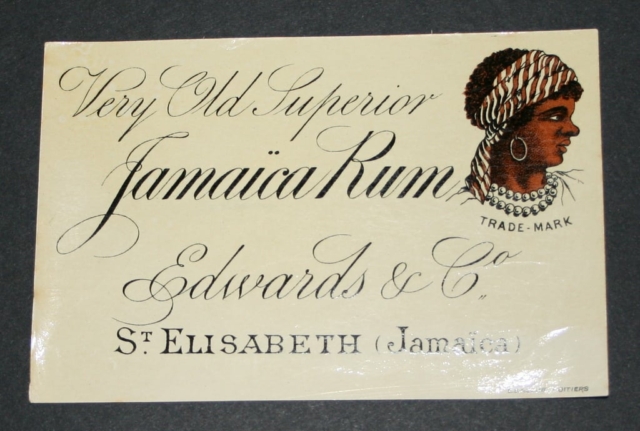 Very Old Superior
Jamaïca Rum
TRADE-MARK
Edwards & Cº
ST ELISABETH (Jamaïca)